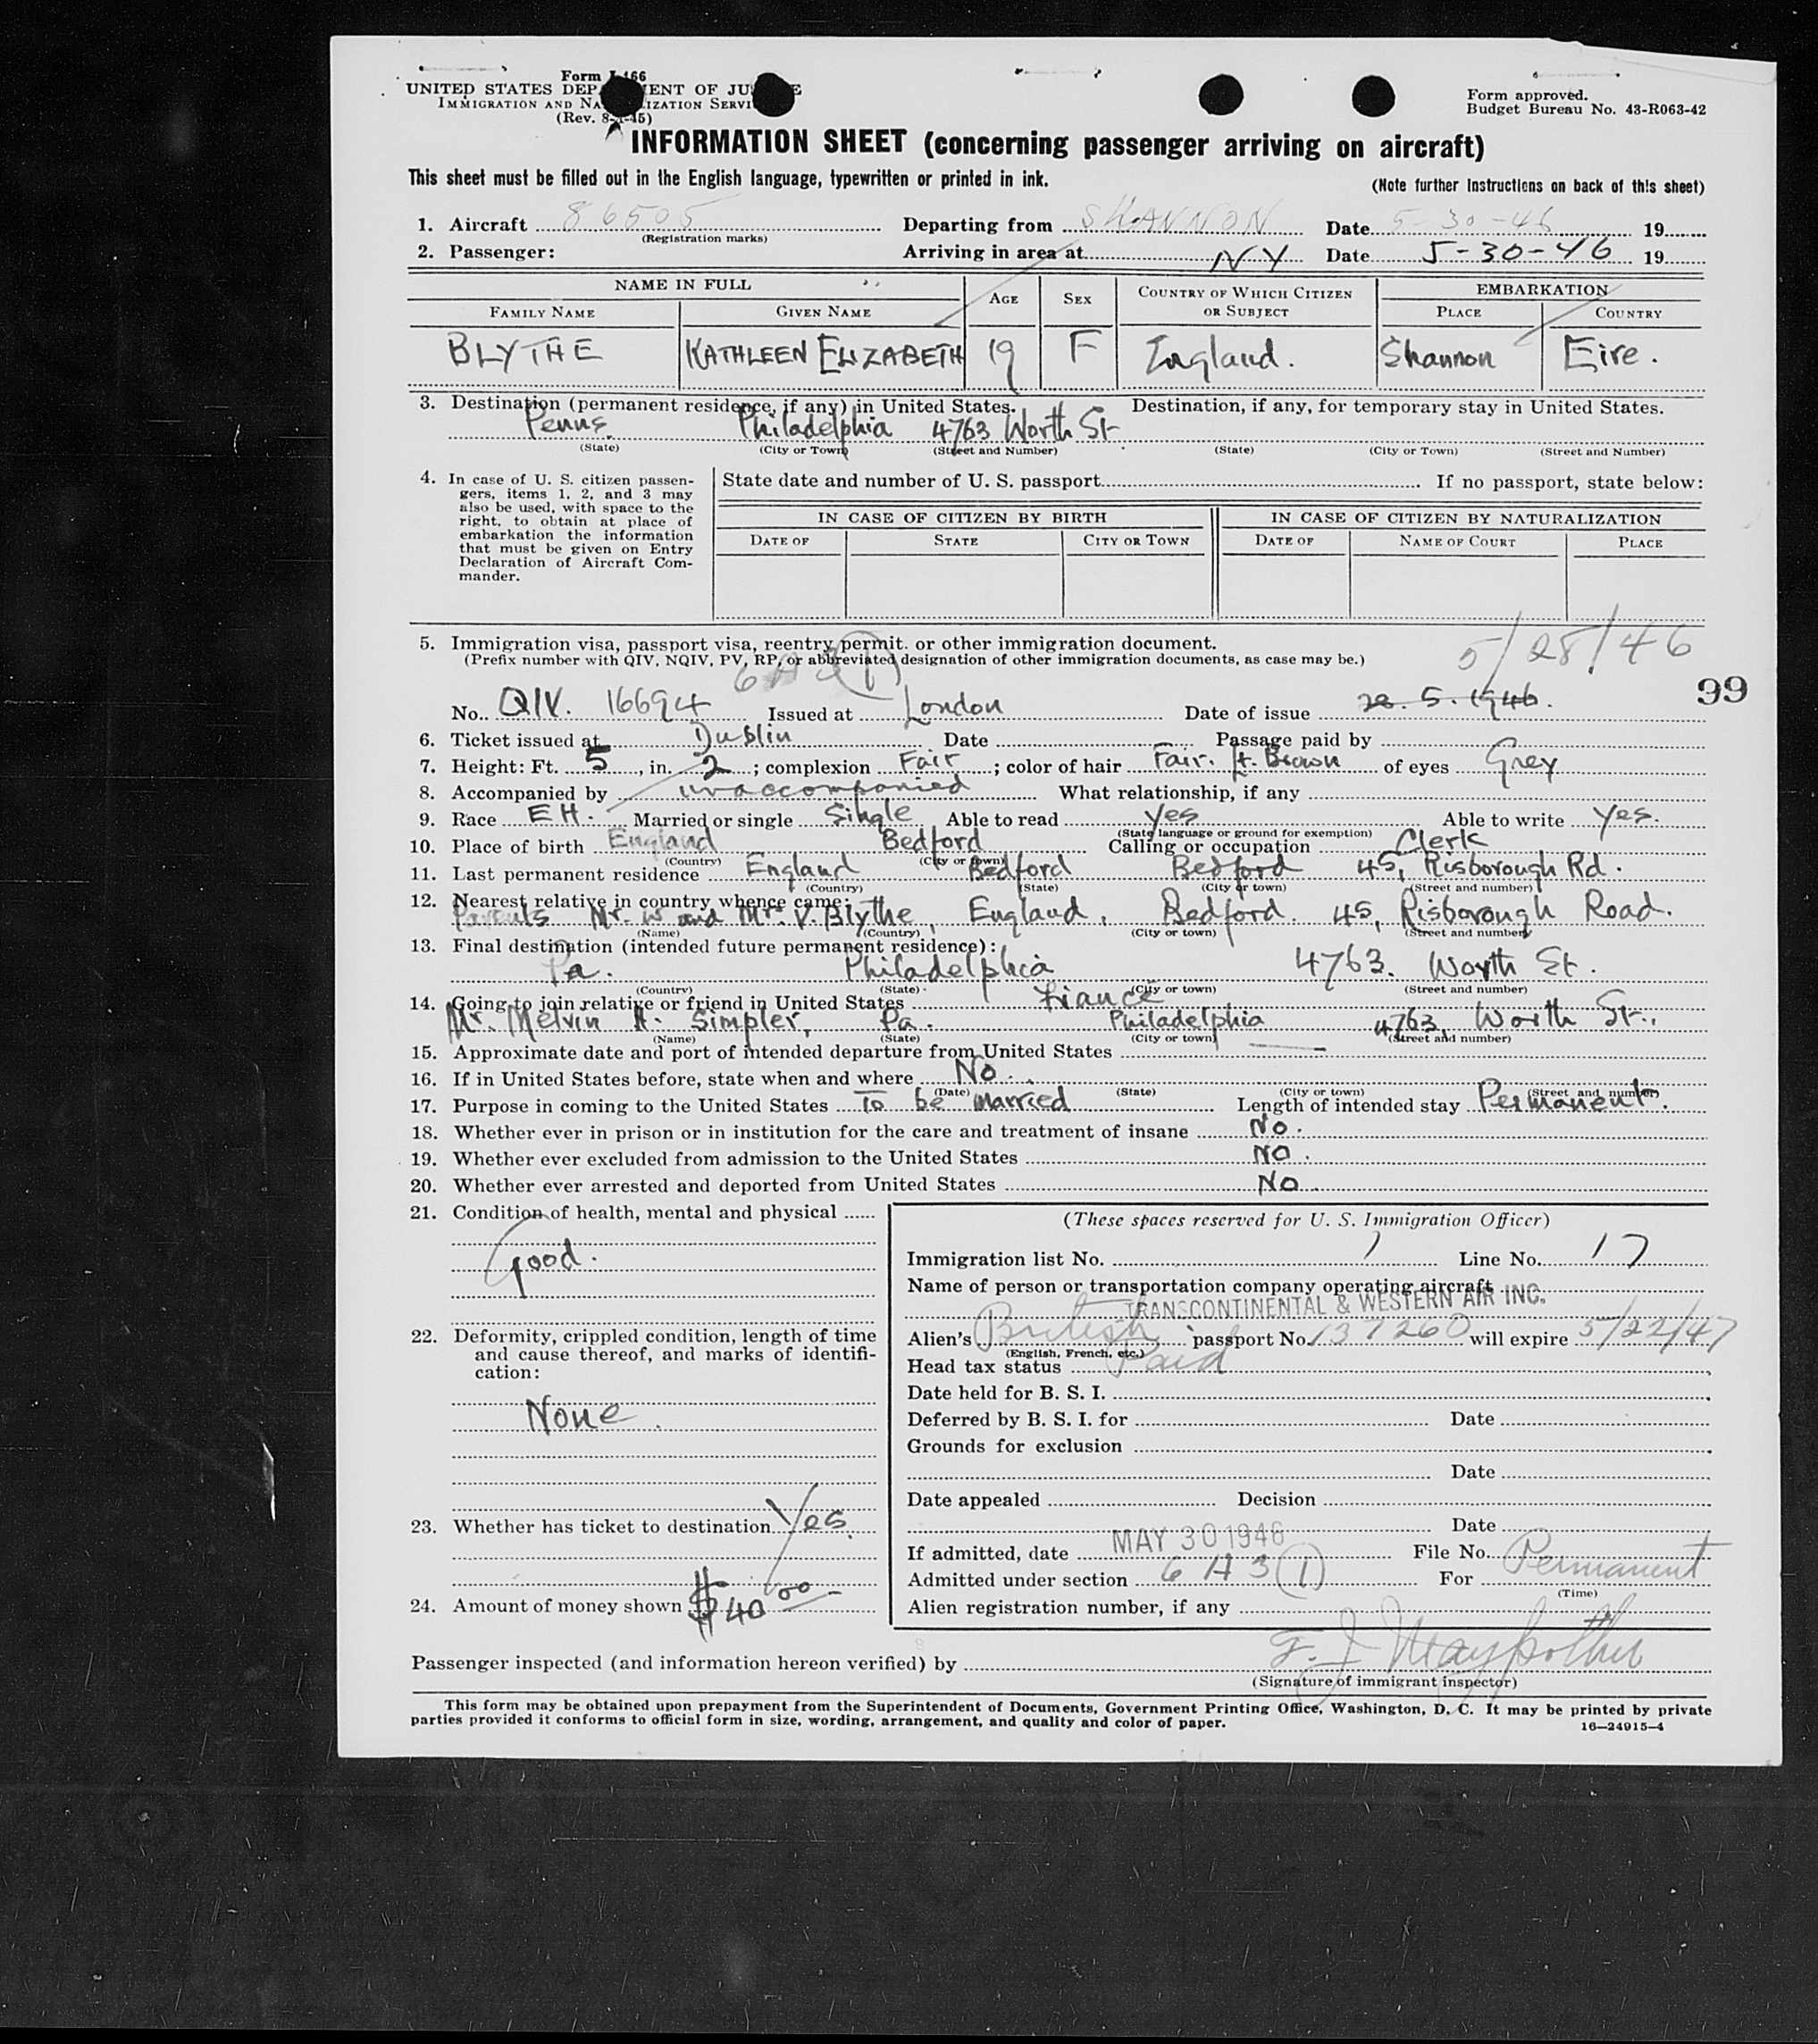 Form I-466
UNITED STATES DEPARTMENT OF JUSTICE
IMMIGRATION AND NATURALIZATION SERVICE
(Rev. 8-1-45)
Form approved.
Budget Bureau No. 43-R063-42
INFORMATION SHEET (concerning passenger arriving on aircraft)
This sheet must be filled out in the English language, typewritten or printed in ink.
(Note further instructions on back of this sheet)
1. Aircraft 86505 Departing from SHANNON Date 5-30-46 19
(Registration marks)
2. Passenger: Arriving in area at NY Date 5-30-46 19
NAME IN FULL AGE SEX COUNTRY OF WHICH CITIZEN OR SUBJECT EMBARKATION
FAMILY NAME GIVEN NAME PLACE COUNTRY
BLYTHE KATHLEEN ELIZABETH 19 F England. Shannon Eire.
3. Destination (permanent residence, if any) in United States. Destination, if any, for temporary stay in United States.
Penns. Philadelphia 4763 Worth St
(State) (City or Town) (Street and Number) (State) (City or Town) (Street and Number)
4. In case of U. S. citizen passengers, items 1, 2, and 3 may also be used, with space to the right, to obtain at place of embarkation the information that must be given on Entry Declaration of Aircraft Commander.
State date and number of U. S. passport If no passport, state below:
IN CASE OF CITIZEN BY BIRTH IN CASE OF CITIZEN BY NATURALIZATION
DATE OF STATE CITY OR TOWN DATE OF NAME OF COURT PLACE
5. Immigration visa, passport visa, reentry permit. or other immigration document.
5/28/46
(Prefix number with QIV, NQIV, PV, RP, or abbreviated designation of other immigration documents, as case may be.)
6A3(1)
99
No. QIV. 16694 Issued at London Date of issue 28. 5. 1946.
6. Ticket issued at Dublin Date Passage paid by
7. Height: Ft. 5, in. 2; complexion Fair; color of hair Fair. Lt. Brown of eyes Grey
8. Accompanied by unaccompanied What relationship, if any
9. Race EH. Married or single Single Able to read Yes Able to write Yes.
(State language or ground for exemption)
10. Place of birth England Bedford Calling or occupation Clerk
(Country) (City or town)
11. Last permanent residence England Bedford Bedford 45, Risborough Rd.
(Country) (State) (City or town) (Street and number)
12. Nearest relative in country whence came:
Parents Mr. W and Mrs. V. Blythe, England, Bedford. 45, Risborough Road.
(Name) (Country) (City or town) (Street and number)
13. Final destination (intended future permanent residence):
Pa. Philadelphia 4763. Worth St.
(Country) (State) (City or town) (Street and number)
14. Going to join relative or friend in United States Fiancé
Mr. Melvin A. Simpler, Pa. Philadelphia 4763, Worth St.,
(Name) (State) (City or town) (Street and number)
15. Approximate date and port of intended departure from United States
16. If in United States before, state when and where No.
(Date) (State) (City or town) (Street and number)
17. Purpose in coming to the United States To be married Length of intended stay Permanent.
18. Whether ever in prison or in institution for the care and treatment of insane No.
19. Whether ever excluded from admission to the United States No.
20. Whether ever arrested and deported from United States No.
21. Condition of health, mental and physical
Good.
22. Deformity, crippled condition, length of time and cause thereof, and marks of identification:
None.
23. Whether has ticket to destination Yes.
24. Amount of money shown $40 00
(These spaces reserved for U. S. Immigration Officer)
Immigration list No. 1 Line No. 17
Name of person or transportation company operating aircraft
TRANSCONTINENTAL & WESTERN AIR INC.
Alien's British passport No. 137260 will expire 5/22/47
(English, French, etc.)
Head tax status Paid
Date held for B. S. I.
Deferred by B. S. I. for Date
Grounds for exclusion
Date
Date appealed Decision
Date
If admitted, date MAY 30 1946 File No.
Admitted under section 6 A 3 (1) For Permanent
(Time)
Alien registration number, if any
Passenger inspected (and information hereon verified) by F. J.
(Signature of immigrant inspector)
This form may be obtained upon prepayment from the Superintendent of Documents, Government Printing Office, Washington, D. C. It may be printed by private
parties provided it conforms to official form in size, wording, arrangement, and quality and color of paper. 16—24915-4